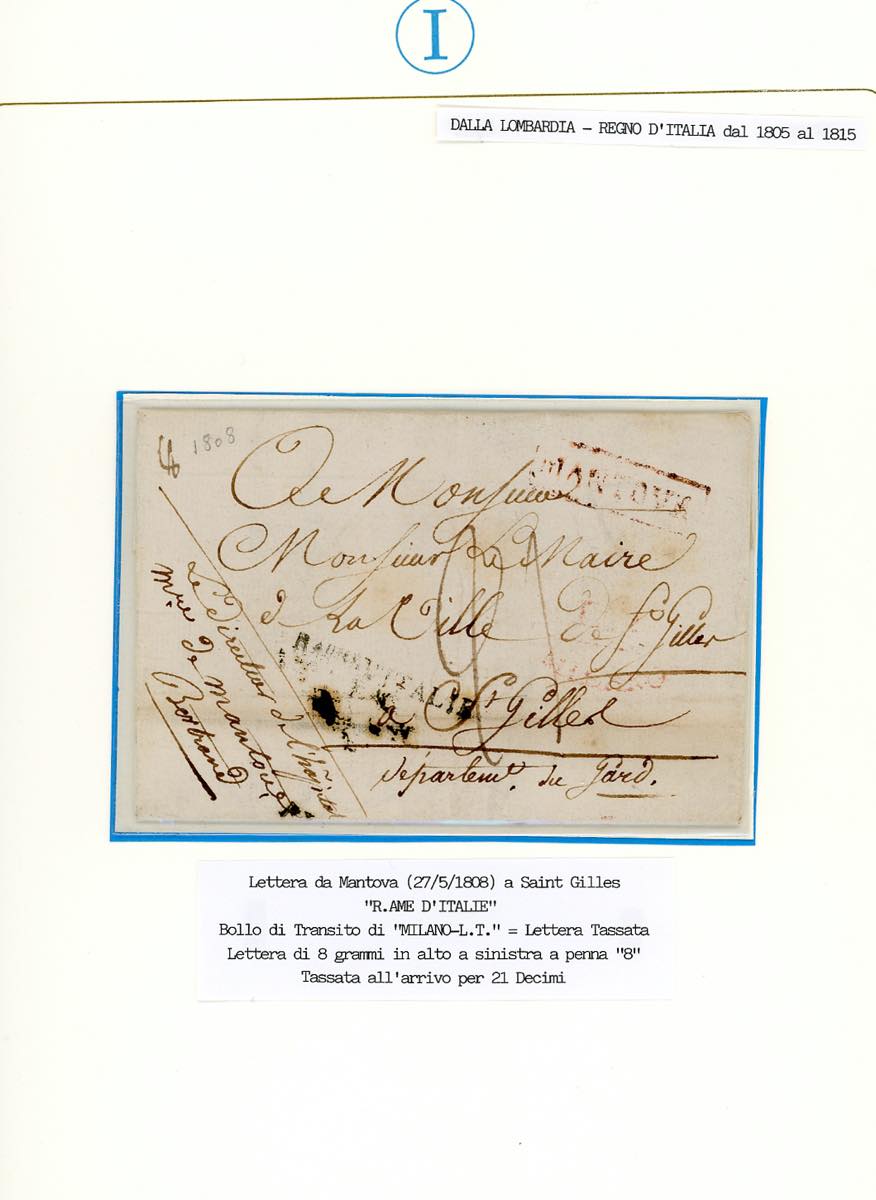 I
DALLA LOMBARDIA - REGNO D'ITALIA dal 1805 al 1815
1808
MANTOVA
A Monsieur
Monsieur Le Maire
de La Ville De St Gilles
a St Gilles
départemt. du Gard.
Le Directeur de l'hôpital
mre de Mantoue
Bertrand
21
R.AME D'ITALIE
Lettera da Mantova (27/5/1808) a Saint Gilles
"R.AME D'ITALIE"
Bollo di Transito di "MILANO-L.T." = Lettera Tassata
Lettera di 8 grammi in alto a sinistra a penna "8"
Tassata all'arrivo per 21 Decimi